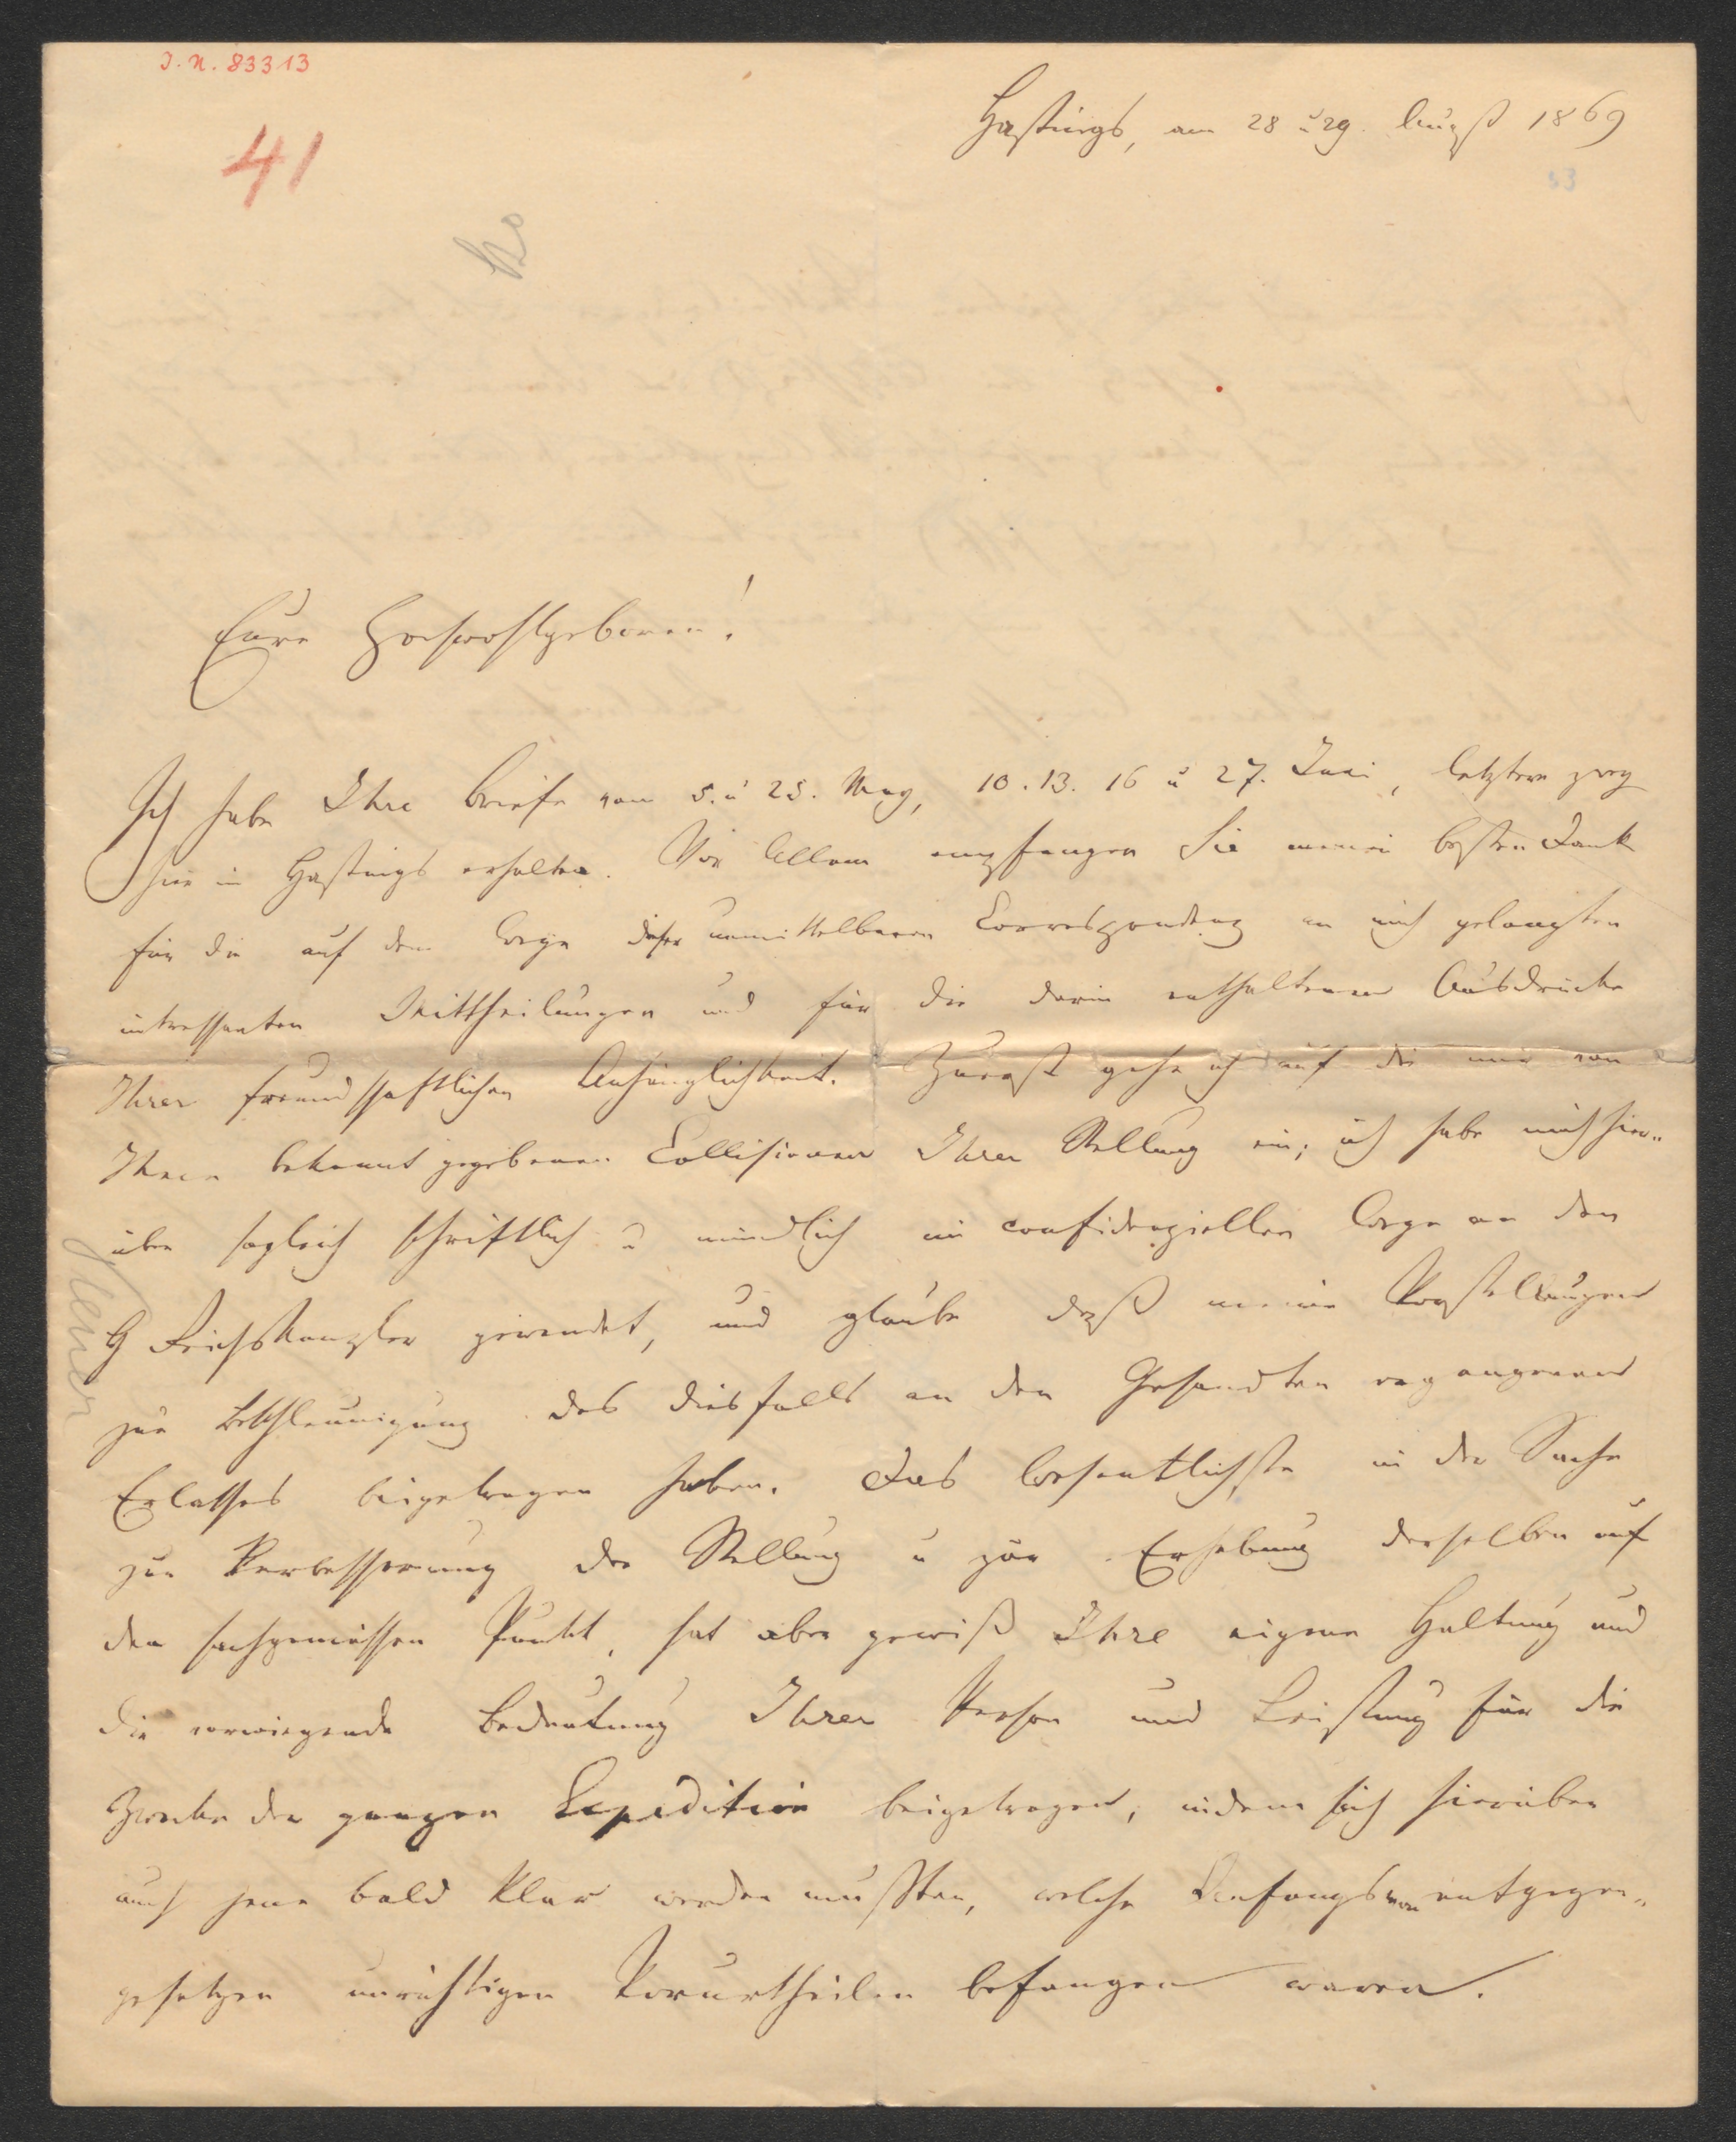 I. N. 83313
41
Hastings, am 28 u 29. Augst 1869
53
Eure Hochwohlgeboren!
Ich habe Ihre Briefe vom 5. u 25. May, 10. 13. 16 u 27. Juni, letztere zwey
hier in Hastings erhalten. Vor Allem empfangen Sie meinen besten Dank
für die auf dem Wege dieser unmittelbaren Correspondenz an mich gelangten
intressanten Mittheilungen und für die darin enthaltenen Ausdrücke
Ihrer freundschaftlichen Anhänglichkeit. Zuerst gehe ich auf die mir von
Ihnen bekannt gegebenen Collisionen Ihrer Stellung ein; ich habe mich hier„
über sogleich schriftlich u mündlich im confidenziellen Wege an den
H Reichskanzler gewendet, und glaube daß meine Vorstellungen
zur Beschleunigung des diesfalls an den Gesandten ergangenen
Erlasses beigetragen haben. Das Wesentlichste in der Sache
zur Verbesserung der Stellung u zur Erhebung derselben auf
den sachgemässen Punkt, hat aber gewiß Ihre eigene Haltung und
die vorwiegende Bedeutung Ihrer Person und Leistung für die
Zwecke der ganzen Expedition beigetragen, indem sich hierüber
auch jene bald klar werden mußten, welche Anfangs von entgegen„
gesetzen unrichtigen Vorurtheilen befangen waren.